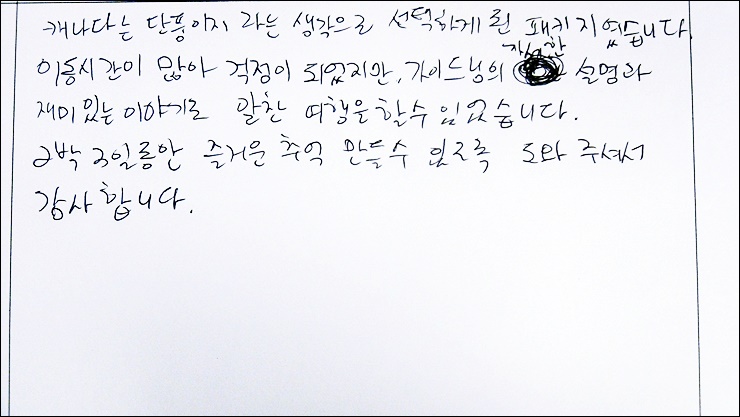 캐나다는 단풍이지 라는 생각으로 선택하게 된 패키지였습니다.
이동시간이 많아 걱정이 되었지만, 가이드님의 자상한 설명과
재미있는 이야기로 알찬 여행을 할수 있었습니다.
2박 3일동안 즐거운 추억 만들수 있도록 도와 주셔서
감사합니다.